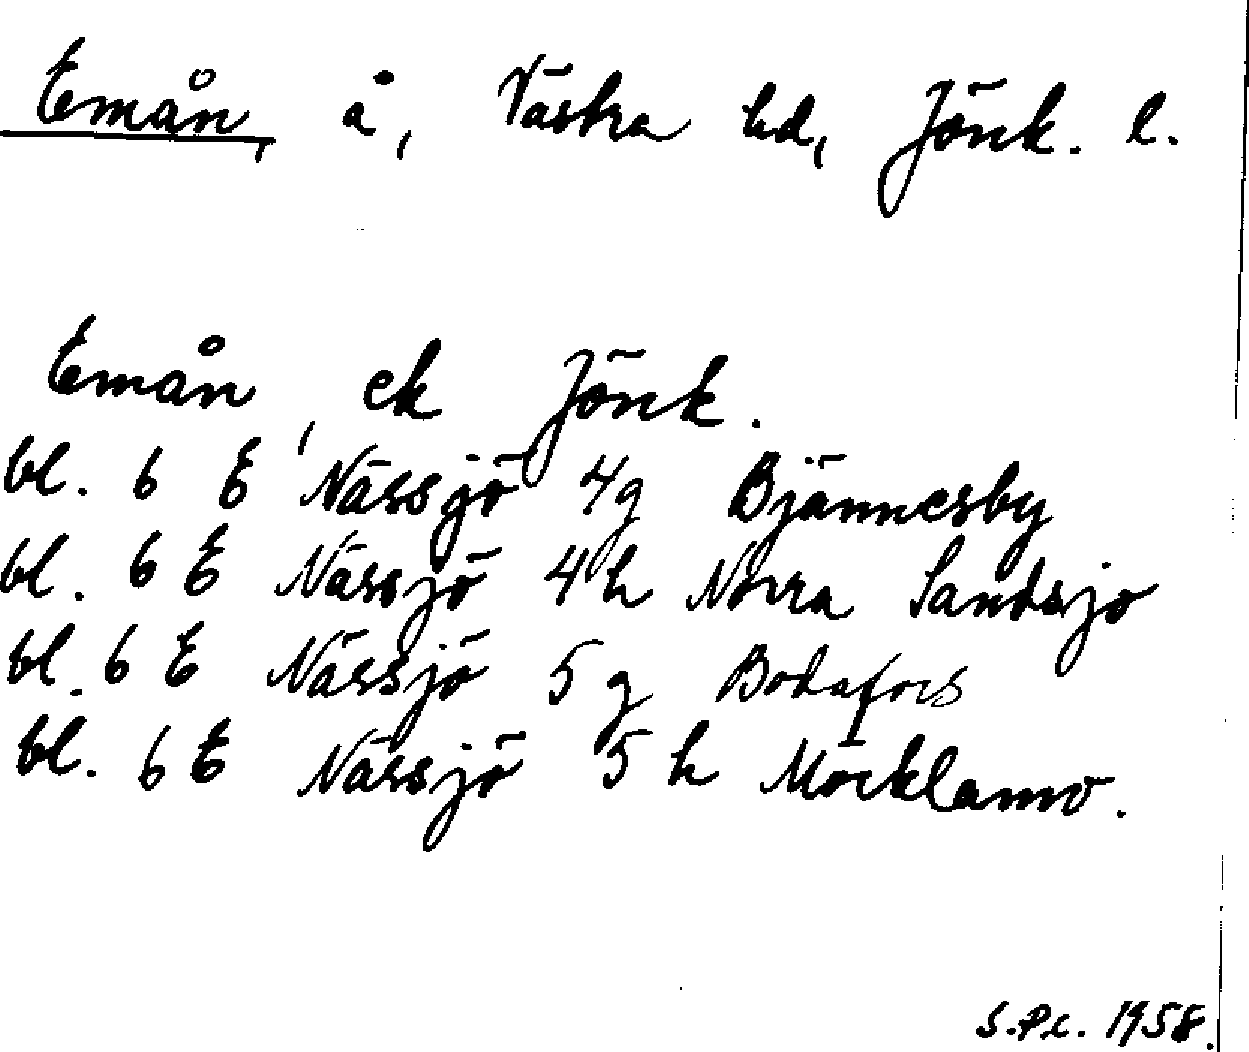 Emån, å, Västra hd, Jönk. l.
Emån, ek Jönk.
bl. 6 E Nässjö 4g Bjännesby
bl. 6 E Nässjö 4h Norra Sandsjö
bl. 6 E Nässjö 5g Bodafors
bl. 6 E Nässjö 5h Möcklamo.
S.P.c. 1958.